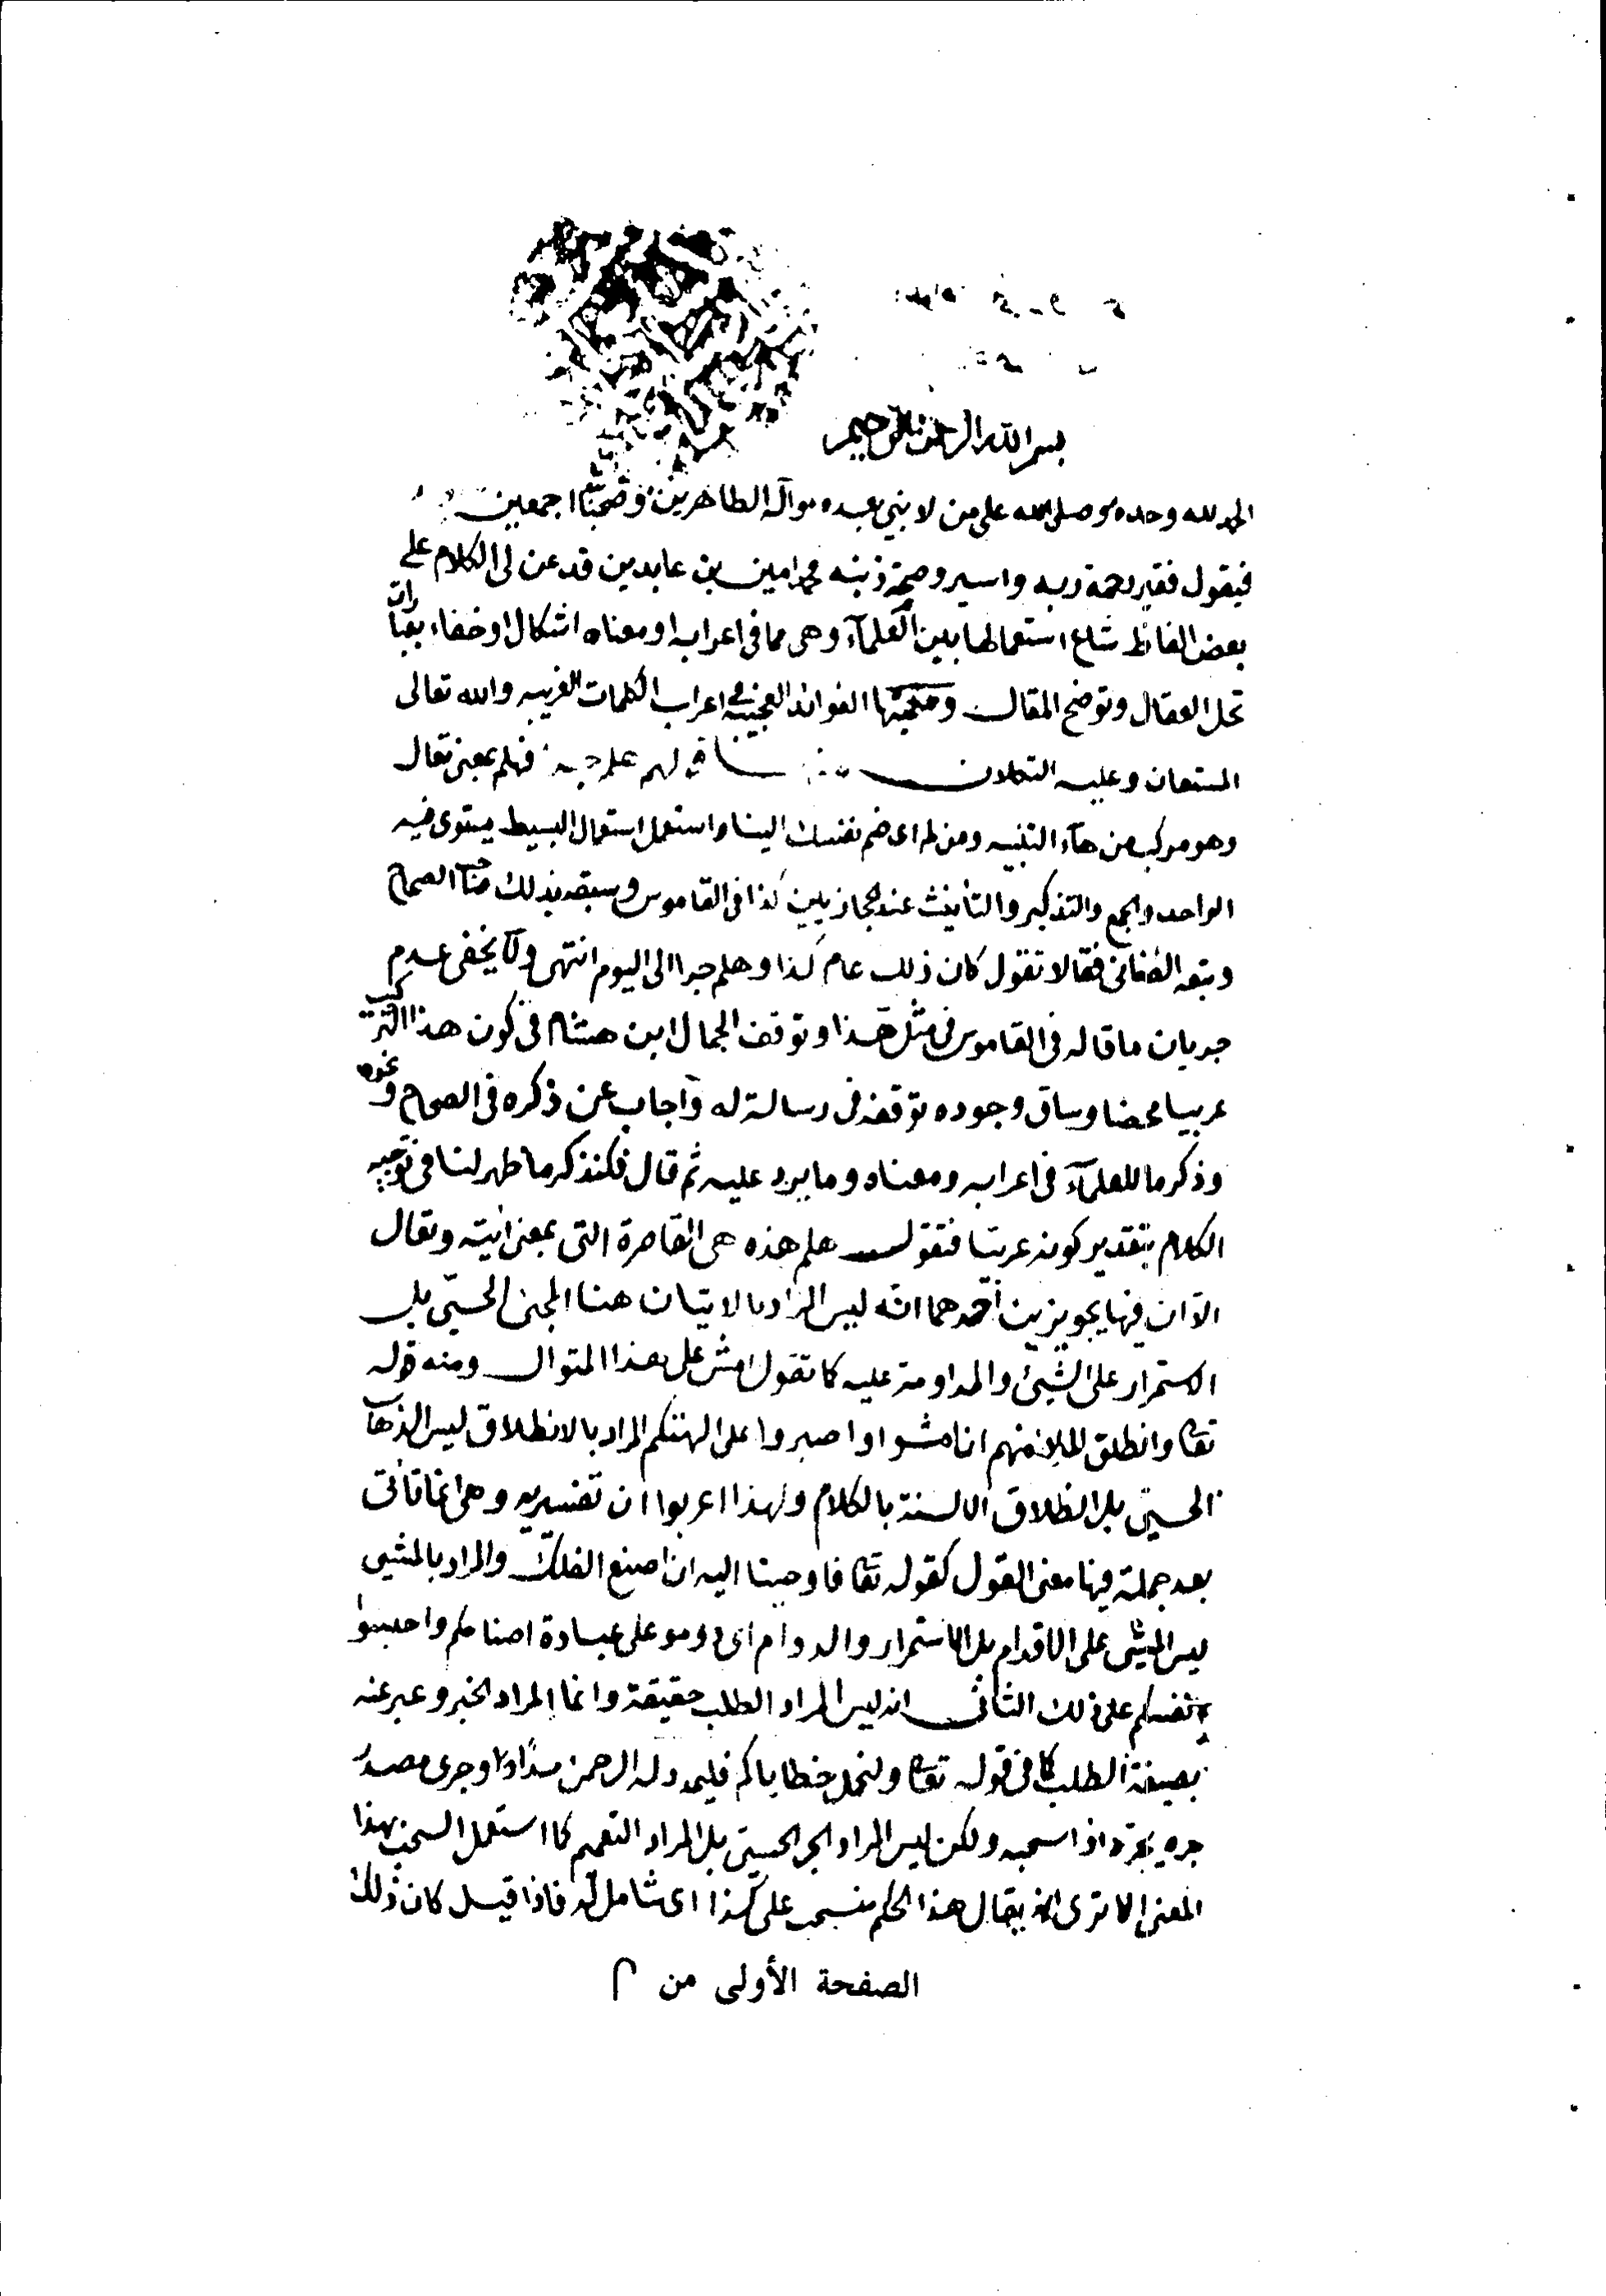 بسم الله الرحمن الرحيم
الحمد لله وحده وصلى الله على من لا نبي بعده وآله الطاهرين وصحبه اجمعين
فيقول فقير رحمة ربه واسير وصمة ذنبه محمد امين بن عابدين قد عن لى الكلام على
بعض الفاظ شاع استعمالها بين العلمآء وهى مما فى اعرابه او معناه اشكال او خفاء بعبارات
تحل العقال وتوضح المقال وسميتها الفوائد العجيبه فى اعراب الكلمات الغريبه والله تعالى
المستعان وعليه التكلان قولهم هلم جرا فهلم بمعنى تعال
وهو مركب من هآء التنبيه ومن لم اى ضم نفسك الينا واستعمل استعمال البسيط يستوى فيه
الواحد والجمع والتذكير والتأنيث عند الحجازيين كذا فى القاموس وسبقه بذلك صاحب الصحاح
وتبعه الصغانى فقالا تقول كان ذلك عام كذا وهلم جرا الى اليوم انتهى ولا يخفى عدم
جريان ما قاله فى القاموس فى مثل هذا وتوقف الجمال ابن هشام فى كون هذا التركيب
عربيا محضا وساق وجوه توقفه فى رسالة له وأجاب عن ذكره فى الصحاح ونحوه
وذكر ما للعلمآء فى اعرابه ومعناه وما يرد عليه ثم قال فلنذكر ما ظهر لنا فى توجيه
الكلام بتقدير كونه عربيا فنقول هلم هذه هى القاصرة التى بمعنى ائت وتعال
الا ان فيها تجويزين أحدهما انه ليس المراد بالاتيان هنا المجئ الحسى بل
الاستمرار على الشيئ والمداومة عليه كما تقول امش على هذا المنوال ومنه قوله
تعا وانطلق الملا منهم ان امشوا واصبروا على الهتكم المراد بالانطلاق ليس الذهاب
الحسى بل انطلاق الالسنة بالكلام ولهذا اعربوا ان تفسيريه وهى انما تأتى
بعد جملة فيها معنى القول كقوله تعا فاوحينا اليه ان اصنع الفلك والمراد بالمشي
ليس المشى على الاقدام بل الاستمرار والدوام اى دوموا على عبادة اصنامكم واحبسوا
انفسكم على ذلك الثانى انه ليس المراد الطلب حقيقة وانما المراد الخبر وعبر عنه
بصيغة الطلب كما فى قوله تعا ولنحمل خطاياكم فليمدد له الرحمن مدا وجرى مصدر
جره يجره اذا سحبه ولكن ليس المراد الجر الحسى بل المراد التعميم كما استعمل السحب بهذا
المعنى الا ترى انه يقال هذا الحكم منسحب على كذا اى شامل له فاذا قيل كان ذلك
الصفحة الأولى من م